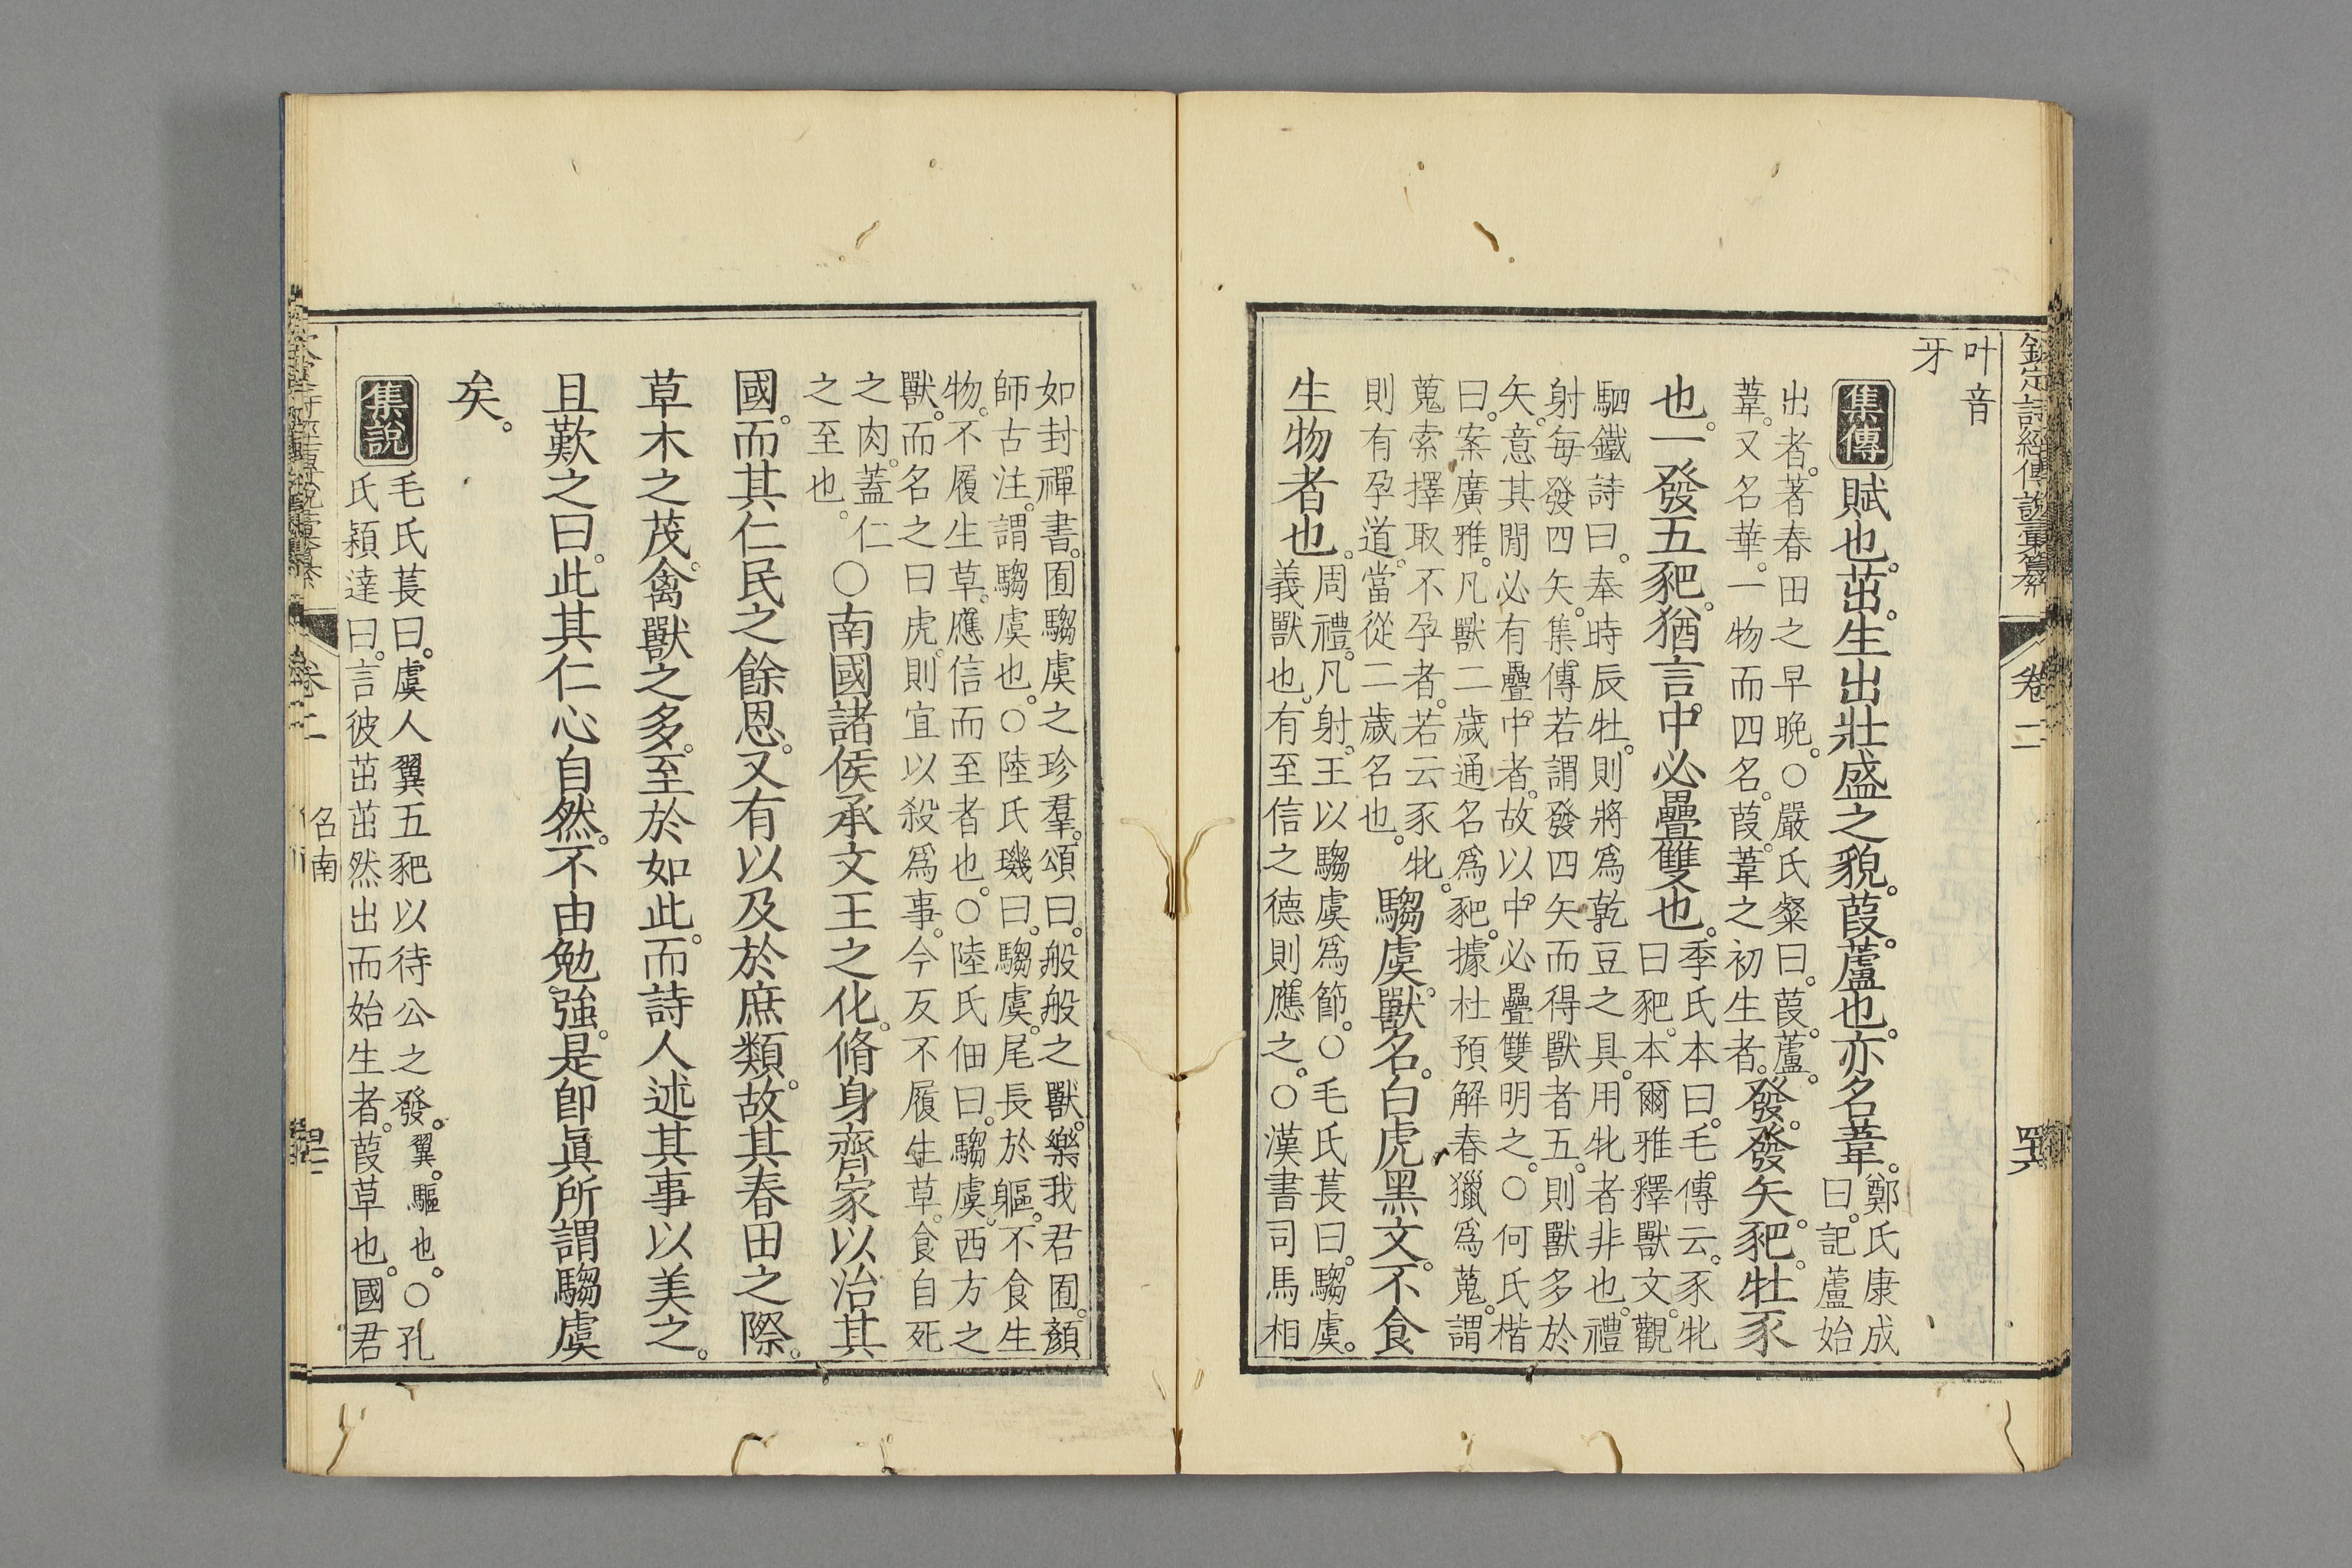 欽定詩經傳說彙纂 卷二
叶音
牙
集傳 賦也。茁。生出壯盛之貌。葭。蘆也。亦名葦。
鄭氏康成
曰。記蘆始
出者。著春田之早晚。○嚴氏粲曰。葭。蘆。
葦。又名華。一物而四名。葭。葦之初生者。
發。發矢。豝。牡豕
也。一發五豝。猶言中必疊雙也。
季氏本曰。毛傳云。豕牝
曰豝。本爾雅釋獸文。觀
駟鐵詩曰。奉時辰牡。則將爲乾豆之具。用牝者非也。禮
射每發四矢。集傳若謂發四矢而得獸者五。則獸多於
矢。意其閒必有疊中者。故以中必疊雙明之。○何氏楷
曰。案廣雅。凡獸二歲通名爲豝。據杜預解春獵爲蒐。謂
蒐索擇取不孕者。若云豕牝。
則有孕道。當從二歲名也。
騶虞。獸名。白虎黑文。不食
生物者也。
周禮。凡射。王以騶虞爲節。○毛氏萇曰。騶虞。
義獸也。有至信之德則應之。○漢書司馬相
如封禪書。囿騶虞之珍羣。頌曰。般般之獸。樂我君囿。顏
師古注。謂騶虞也。○陸氏璣曰。騶虞。尾長於軀。不食生
物。不履生草。應信而至者也。○陸氏佃曰。騶虞。西方之
獸。而名之曰虎。則宜以殺爲事。今反不履生草。食自死
之肉。蓋仁
之至也。
○南國諸侯承文王之化。脩身齊家以治其
國。而其仁民之餘恩。又有以及於庶類。故其春田之際。
草木之茂。禽獸之多。至於如此。而詩人述其事以美之。
且歎之曰。此其仁心自然。不由勉強。是卽眞所謂騶虞
矣。
集說
毛氏萇曰。虞人翼五豝以待公之發。翼。驅也。○孔
氏穎達曰。言彼茁茁然出而始生者。葭草也。國君
卷二 召南